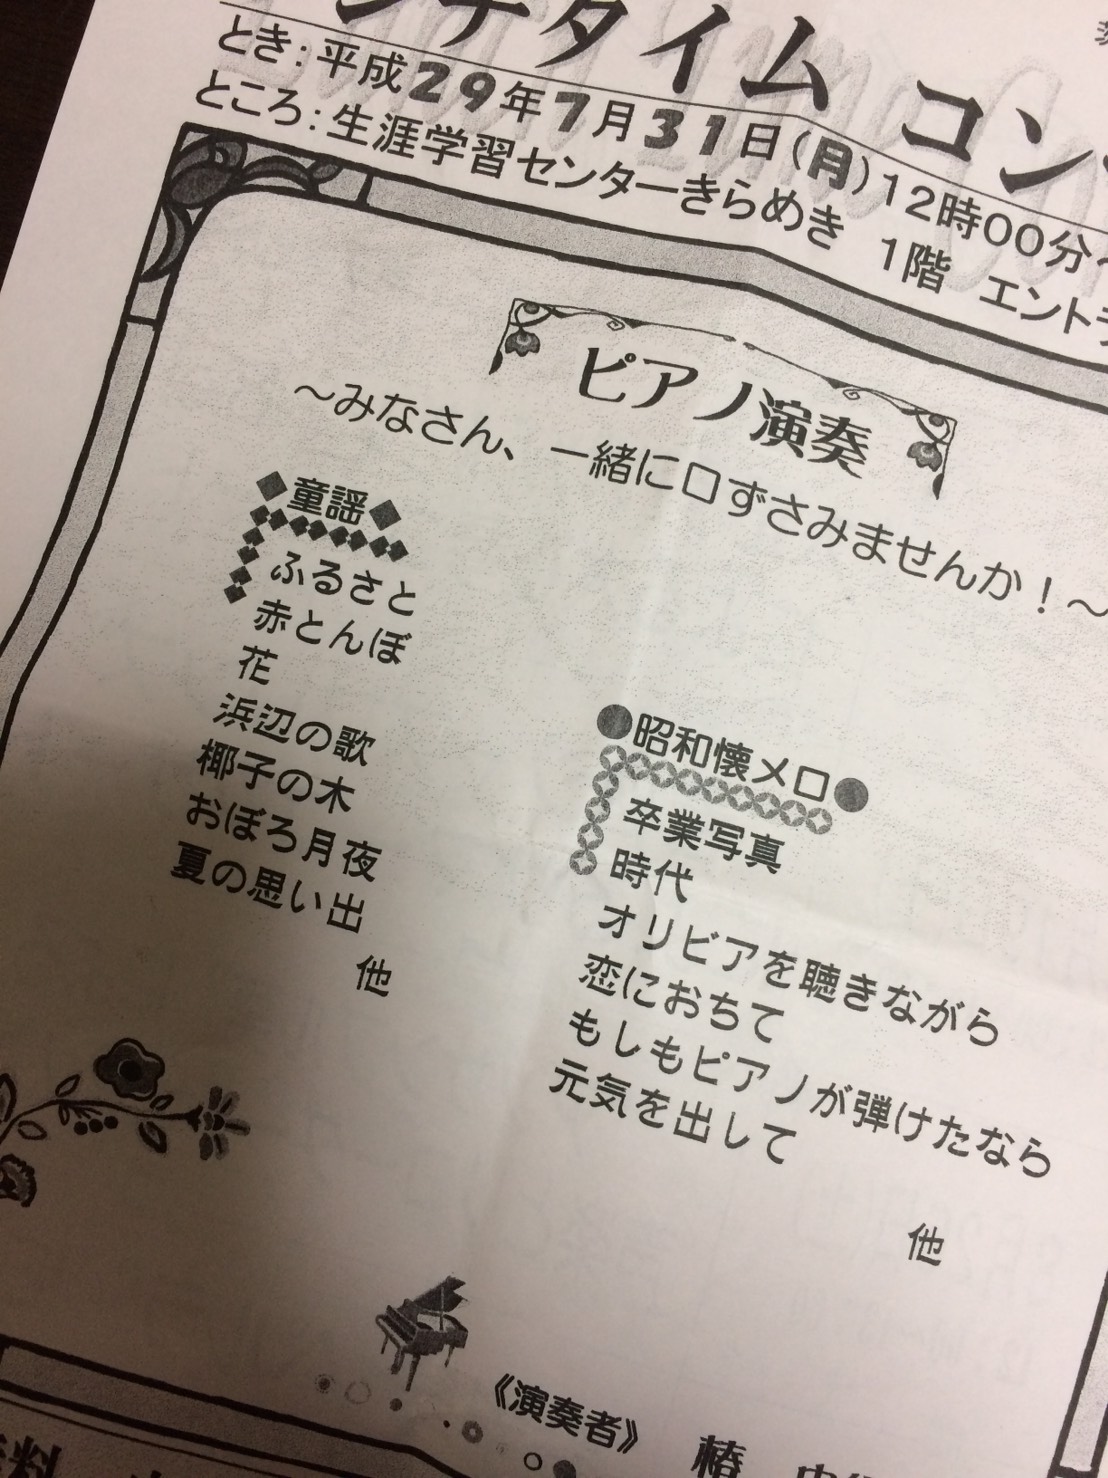 ンチタイム コン
とき：平成29年7月31日(月)12時00分～
ところ：生涯学習センターきらめき 1階 エント
ピアノ演奏
～みなさん、一緒に口ずさみませんか！～
◆童謡◆
ふるさと
赤とんぼ
花
浜辺の歌
椰子の木
おぼろ月夜
夏の思い出
他
●昭和懐メロ●
卒業写真
時代
オリビアを聴きながら
恋におちて
もしもピアノが弾けたなら
元気を出して
他
《演奏者》 椿
料